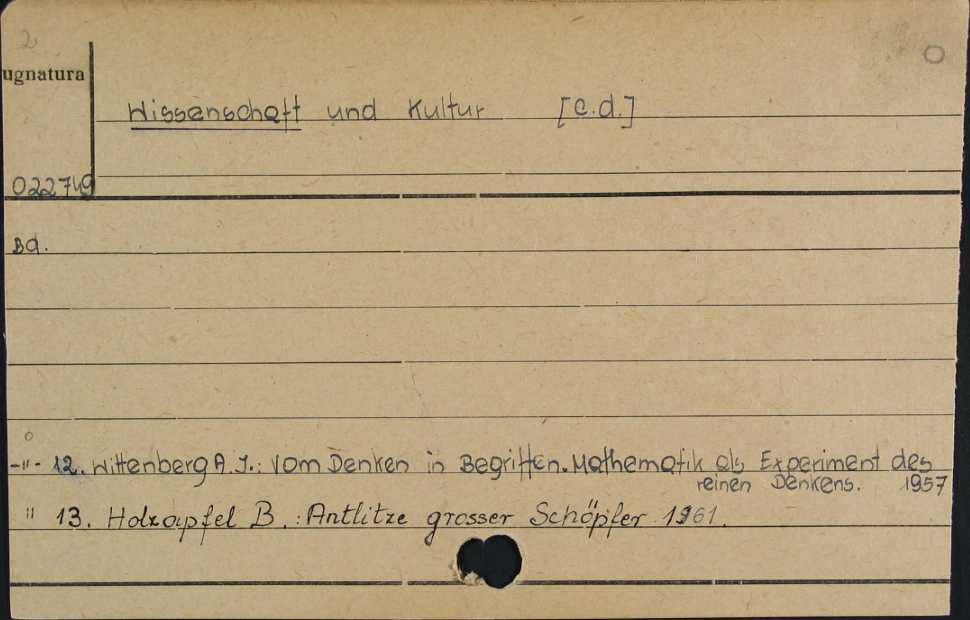 2
ugnatura
Wissenschaft und Kultur [c.d.]
022749
Bd.
-"- 12. Wittenberg A. I.: Vom Denken in Begriffen. Mathematik als Experiment des
reinen Denkens. 1957
" 13. Holzapfel B. : Antlitze grosser Schöpfer 1961.